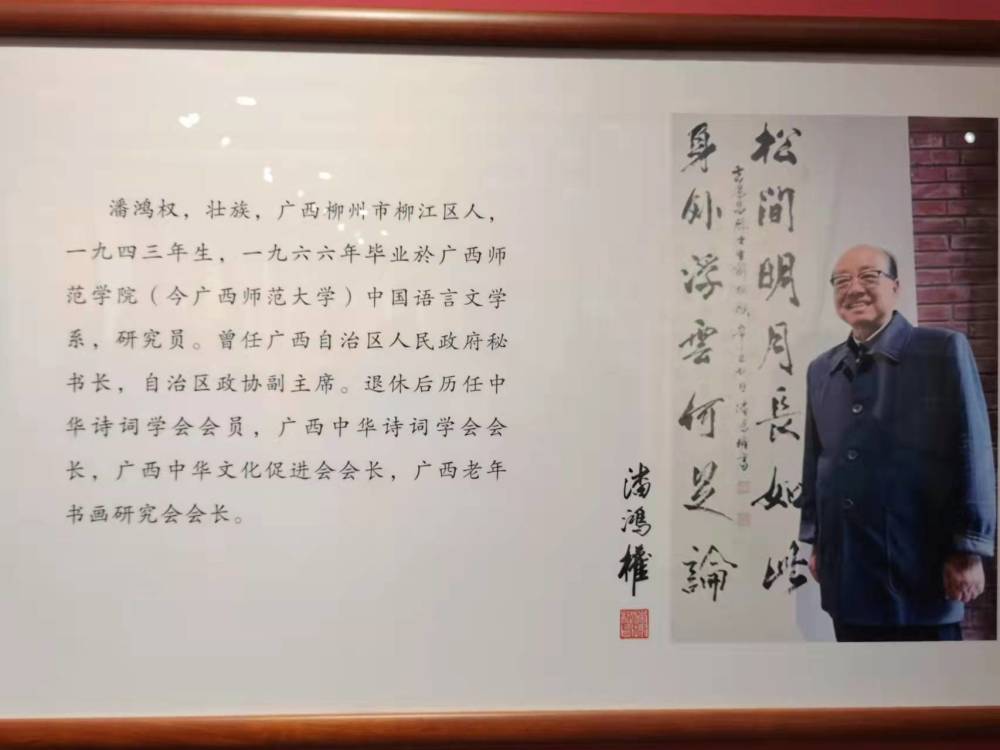 潘鸿权，壮族，广西柳州市柳江区人，
一九四三年生，一九六六年毕业於广西师
范学院（今广西师范大学）中国语言文学
系，研究员。曾任广西自治区人民政府秘
书长，自治区政协副主席。退休后历任中
华诗词学会会员，广西中华诗词学会会
长，广西中华文化促进会会长，广西老年
书画研究会会长。
潘鸿權
松间明月長如此
身外浮雲何足論